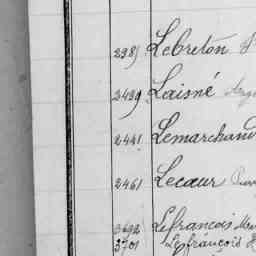 2385 Lebreton
2439 Laisné
2441 Lemarchand
2461 Lecœur
3692 Lefrancois
3701 Lefrançois